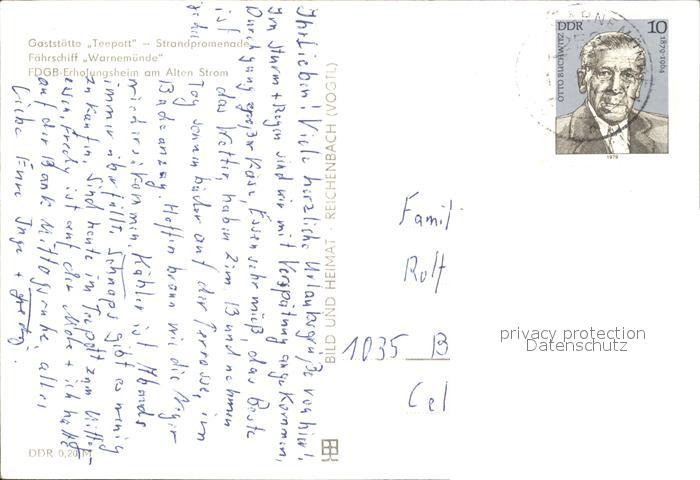 Gaststätte „Teepott" – Strandpromenade
Fährschiff „Warnemünde"
FDGB-Erholungsheim am Alten Strom
Ihr Lieben! Viele herzliche Urlaubsgrüße von hier,
Sturm + Regen sind wir mit Verspätung angekommen,
Essen sehr mieß, das Beste
ist das Wetter, haben 23 und nehmen
Tag Terrasse, im
Badeanzug. Hoffen braun wie die Neger
wieder zu kommen. Kühler ist Abends
immer überfüllt, Schnaps gibt es wenig
zu kaufen. Sind heute im Teepott zum Mittag-
essen, Fredy ist auf der Mole + ich halte
auf der Bank Mittagsruhe, alles
Liebe Eure Inge +
DDR 0,20 M
BILD UND HEIMAT · REICHENBACH (VOGTL)
WARNEMÜN
DDR 10
OTTO BUCHWITZ
1879-1964
1979
Famil
Rolf
1035 B
Cel
privacy protection
Datenschutz